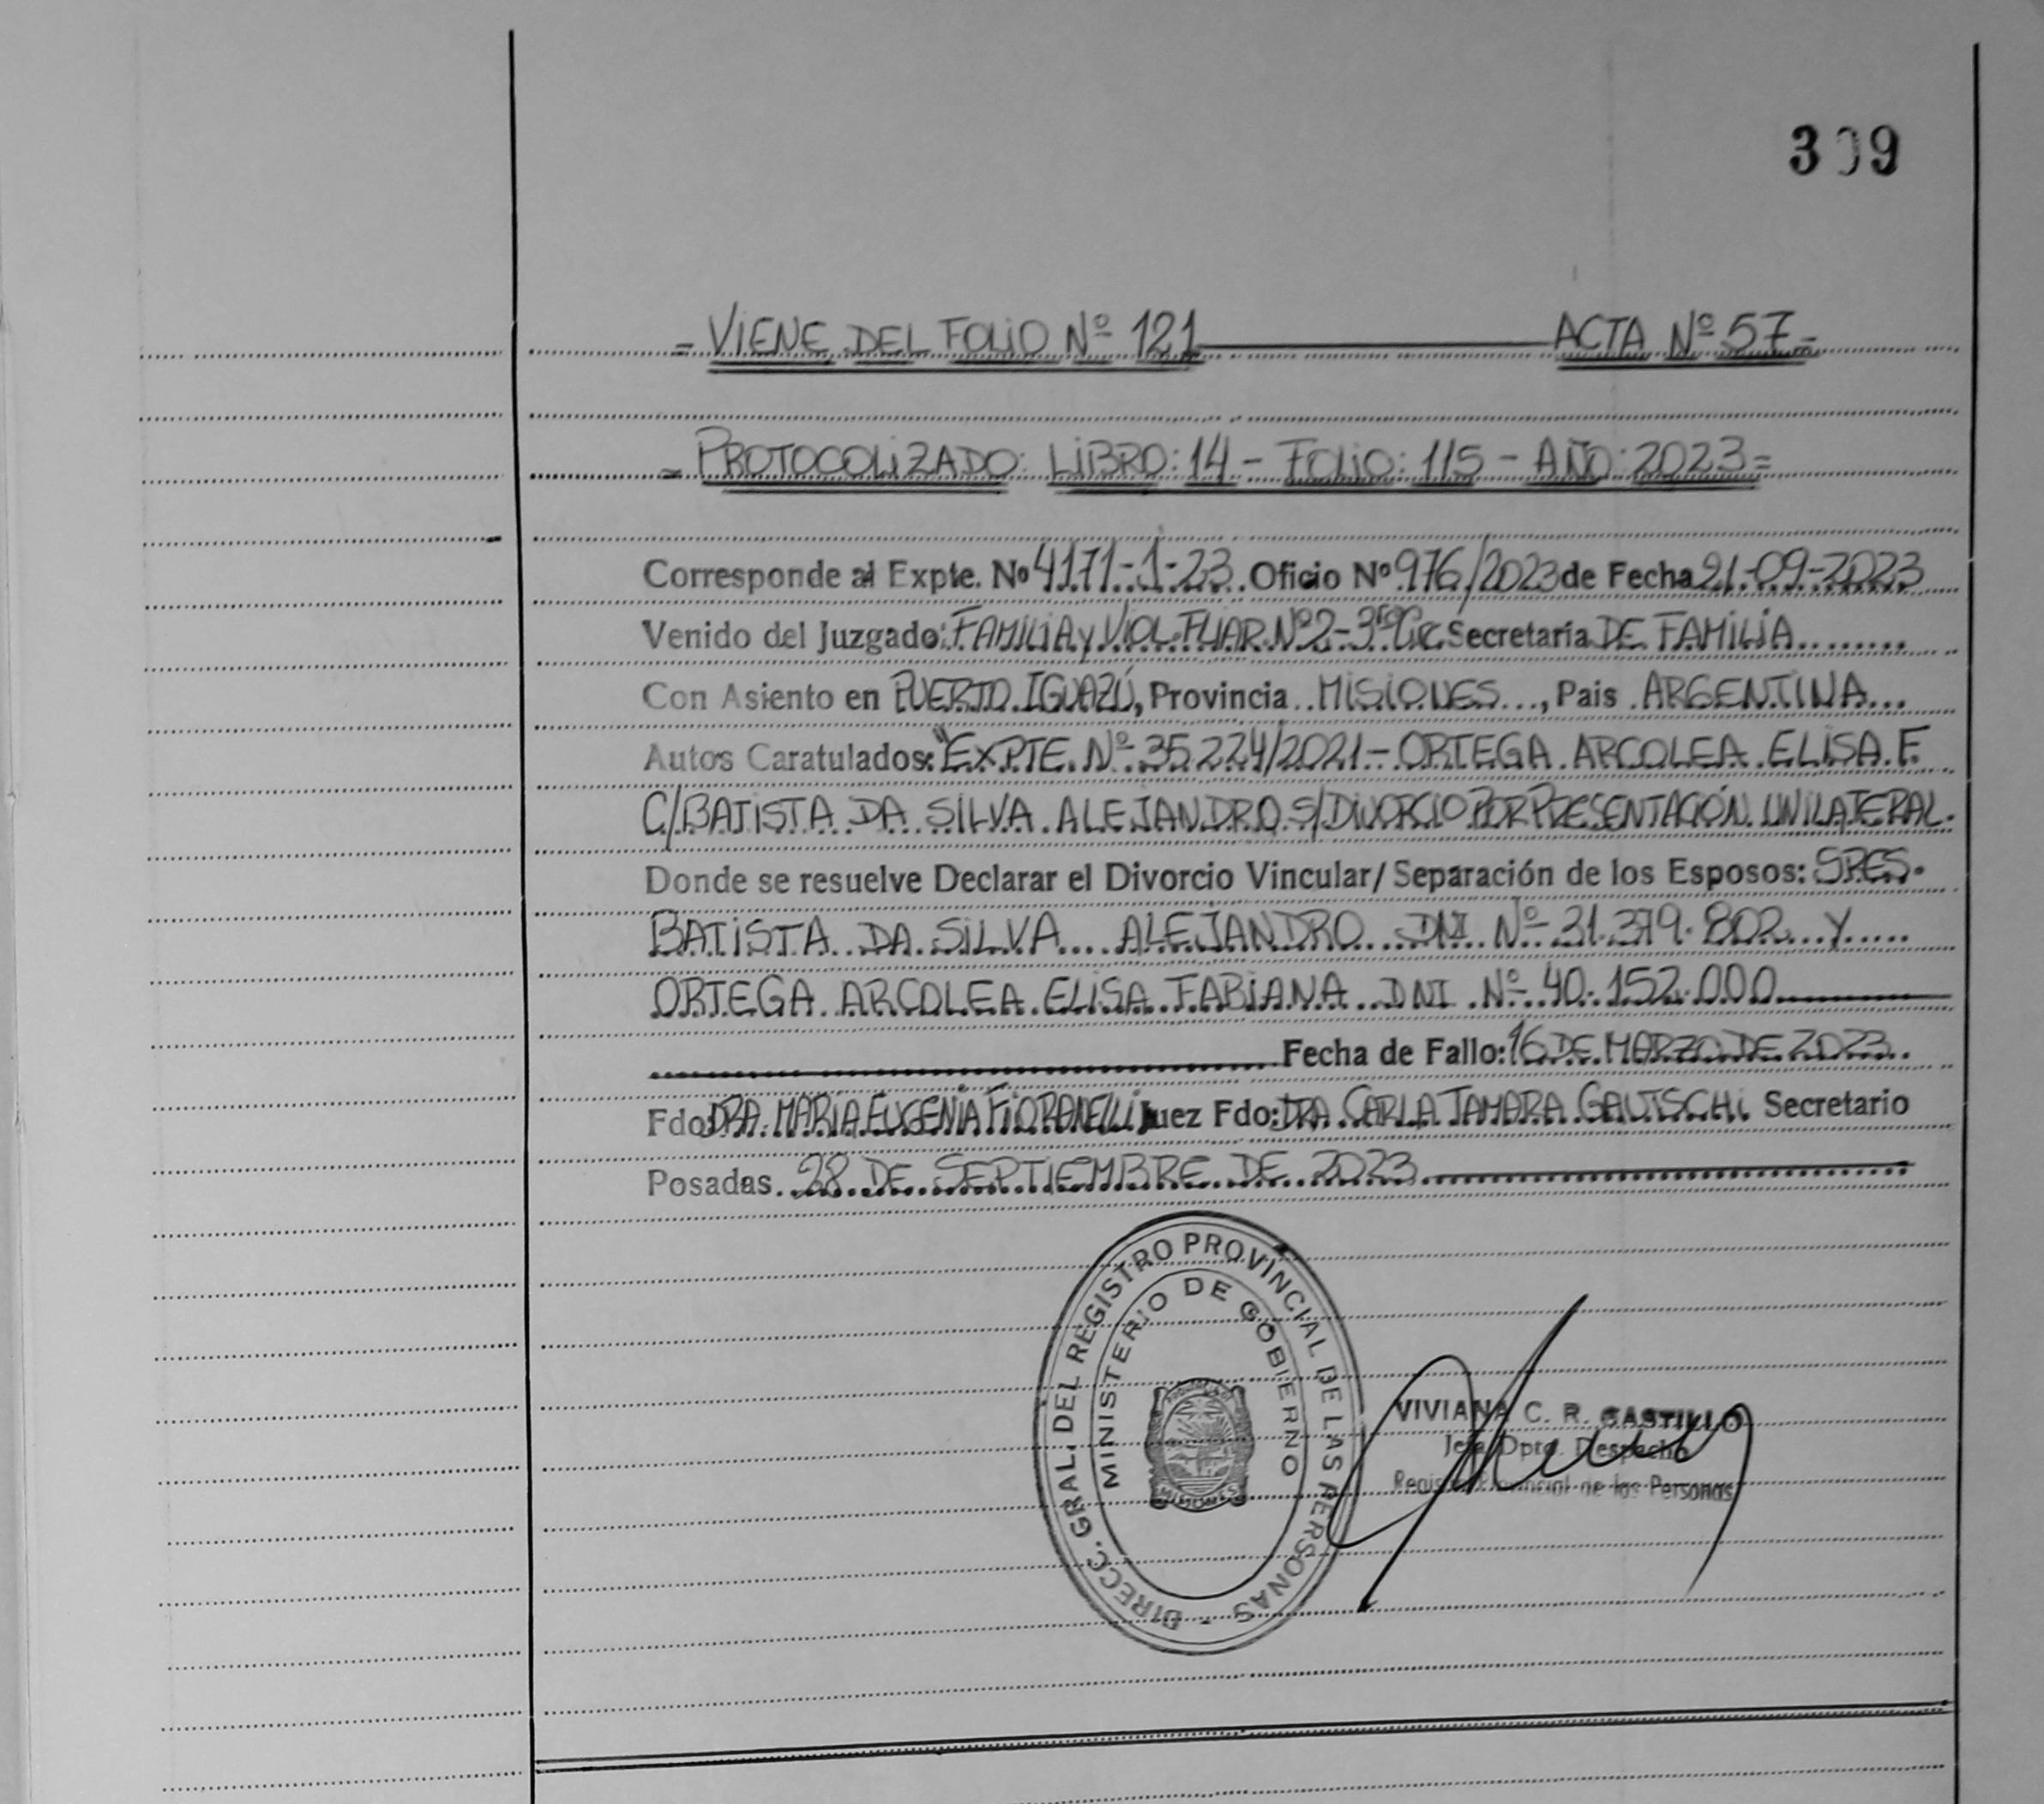 309
= VIENE DEL FOLIO Nº 121 ACTA Nº 57=
= PROTOCOLIZADO: LIBRO: 14 - FOLIO: 115 - AÑO: 2023=
Corresponde al Expte. Nº 4171-1-23. Oficio Nº 976/2023 de Fecha 21-09-2023
Venido del Juzgado: FAMILIA y VIOL. FLIAR. Nº2-3ra Circ. Secretaría DE FAMILIA
Con Asiento en PUERTO IGUAZÚ, Provincia MISIONES, Pais ARGENTINA
Autos Caratulados: "EXPTE. Nº 35224/2021- ORTEGA ARCOLEA ELISA F.
C/BATISTA DA SILVA ALEJANDRO S/DIVORCIO POR PRESENTACIÓN UNILATERAL.
Donde se resuelve Declarar el Divorcio Vincular/ Separación de los Esposos: SRES.
BATISTA DA SILVA ALEJANDRO DNI Nº 31.379.802 Y
ORTEGA ARCOLEA ELISA FABIANA DNI Nº 40.152.000
Fecha de Fallo: 16 DE MARZO DE 2023.
Fdo DRA. MARÍA EUGENIA FIORANELLI Juez Fdo: DRA. CARLA TAMARA GAUTSCHI Secretario
Posadas. 28 DE SEPTIEMBRE DE 2023.
DIRECC. GRAL. DEL REGISTRO PROVINCIAL DE LAS PERSONAS -
MINISTERIO DE GOBIERNO
MISIONES
VIVIANA C. R. CASTILLO
Jefa Dpto. Despacho
Registro Provincial de las Personas